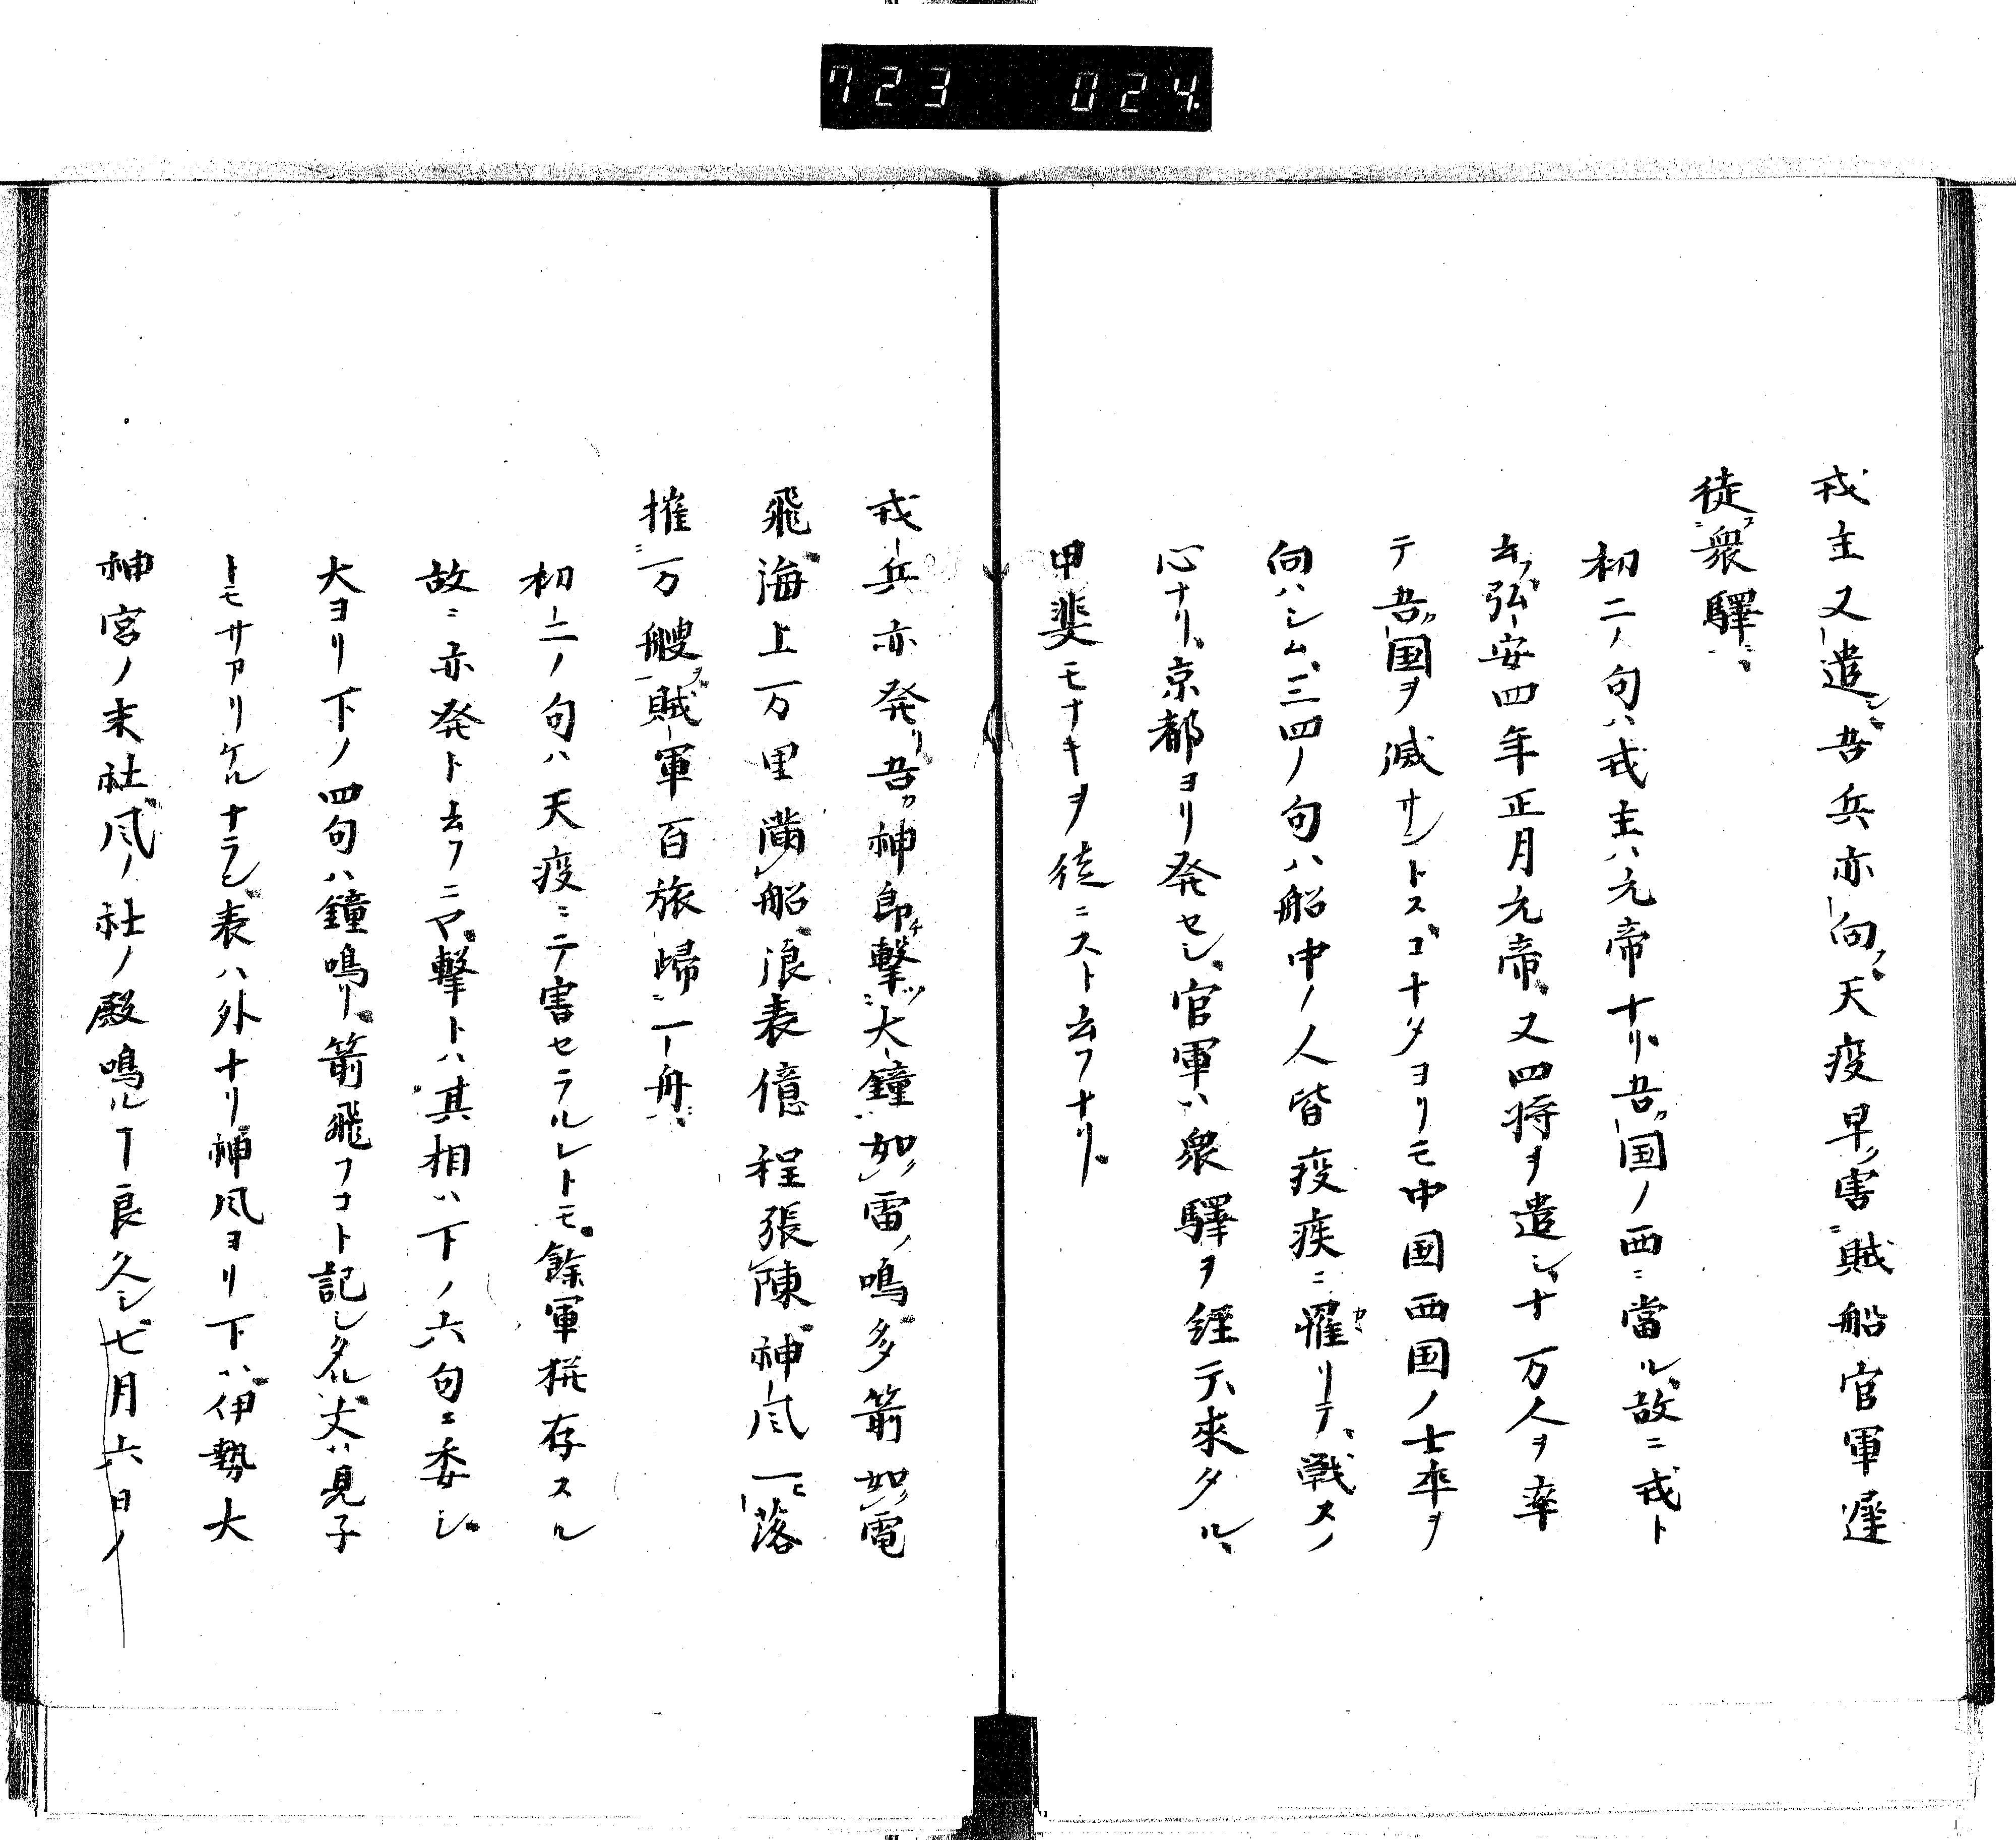 723 024.
戎主又遣シ吾兵亦向フ天疫早ク害ニ賊船官軍遅
徒ニス衆驛ニ
初二ノ句ハ戎主ハ元帝ナリ吾カ国ノ西ニ當ル故ニ戎ト
云フ弘安四年正月元帝又四将ヲ遣シ十万人ヲ率
テ吾カ国ヲ滅サントスコナタヨリモ中国西国ノ士卒ヲ
向ハシム三四ノ句ハ船中ノ人皆疫疾ニ罹リテ戦スノ
心ナリ京都ヨリ発セシ官軍ハ衆驛ヲ經テ來タル
甲斐モナキヲ徒ニスト云フナリ
戎兵亦発リ吾カ神郎チ撃ツ大鐘如ノ雷ノ鳴多箭如ノ電
飛海上万里満船浪表億程張陳神風一ヒ落
摧ニ万艘ヲ賊軍百旅歸ニ一舟ニ
初二ノ句ハ天疫ニテ害セラルレトモ餘軍猶存スル
故ニ亦発ト云フニヤ撃トハ其相ハ下ノ六句ニ委シ
大ヨリ下ノ四句ハ鐘鳴リ箭飛フコト記シタル丈ハ見子
トモサアリケルナラシ表ハ外ナリ神風ヨリ下ハ伊勢大
神宮ノ末社風ノ社ノ殿鳴ルヿ良久シ七月六日ノ